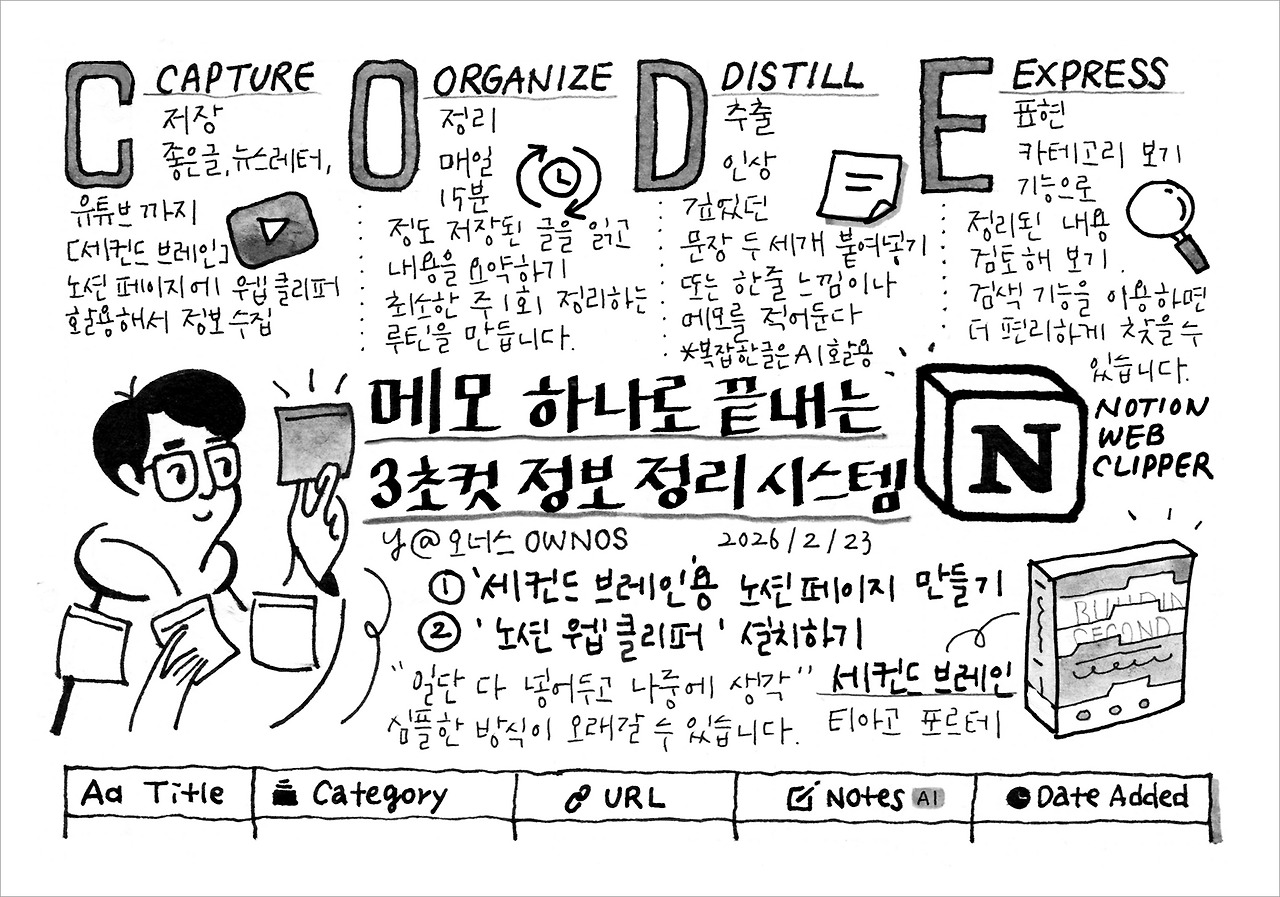 C CAPTURE
저장
좋은글, 뉴스레터,
유튜브까지
[세컨드 브레인]
노션 페이지에 웹클리퍼
활용해서 정보수집
O ORGANIZE
정리
매일
15분
정도 저장된 글을 읽고
내용을 요약하기
최소한 주 1회 정리하는
루틴을 만듭니다.
D DISTILL
추출
인상
깊었던
문장 두세개 붙여넣기
또는 한줄 느낌이나
메모를 적어둔다
*복잡한글은 AI활용
E EXPRESS
표현
카테고리 보기
기능으로
정리된 내용
검토해 보기.
검색 기능을 이용하면
더 편리하게 찾을 수
있습니다.
메모 하나로 끝내는
3초컷 정보 정리 시스템
N
NOTION
WEB
CLIPPER
@오너스 OWNOS 2026/2/23
① '세컨드 브레인'용 노션페이지 만들기
② '노션 웹클리퍼' 설치하기
"일단 다 넣어두고 나중에 생각"
심플한 방식이 오래갈 수 있습니다.
세컨드 브레인
티아고 포르테
BUILDIN
SECOND
Aa Title
Category
URL
Notes AI
Date Added